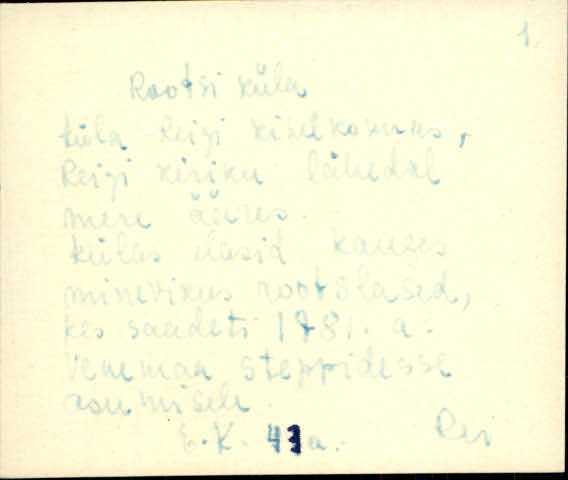 1.
Rootsi küla
küla Reigi kihelkonnas,
Reigi kiriku lähedal
mere ääres.
külas elasid kauges
minevikus rootslased,
kes saadeti 1781. a.
Venemaa steppidesse
asumisele.
E.K. 43a. Rei